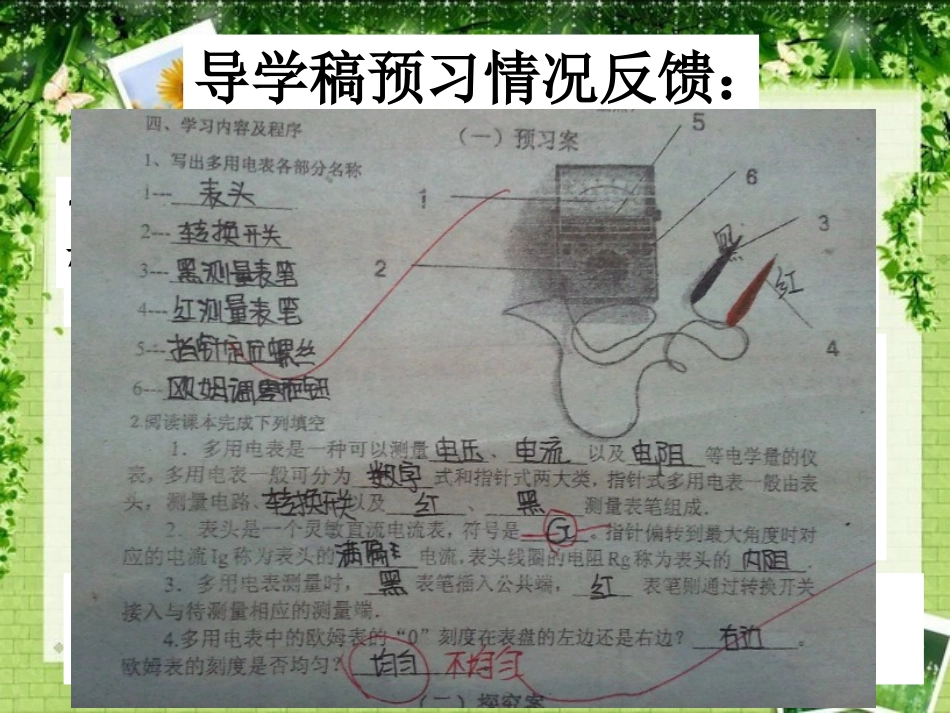 导学稿预习情况反馈：
四、学习内容及程序
（一）预习案
5
1、写出多用电表各部分名称
6
1--- 表头
1
2--- 转换开关
3
黑
3--- 黑测量表笔
2
红
4--- 红测量表笔
4
5--- 指针定位螺丝
6--- 欧姆调零旋钮
2.阅读课本完成下列填空
1．多用电表是一种可以测量 电压 、 电流 以及 电阻 等电学量的仪
表，多用电表一般可分为 数字 式和指针式两大类，指针式多用电表一般由表
头，测量电路、转换开关以及 红 、 黑 测量表笔组成．
2．表头是一个灵敏直流电流表，符号是 G 。指针偏转到最大角度时对
应的电流Ig称为表头的 满偏 电流，表头线圈的电阻Rg称为表头的 内阻 ．
3．多用电表测量时， 黑 表笔插入公共端， 红 表笔则通过转换开关
接入与待测量相应的测量端．
4.多用电表中的欧姆表的“0”刻度在表盘的左边还是右边？ 右边 。
欧姆表的刻度是否均匀？ 均匀 不均匀
（二）探究案